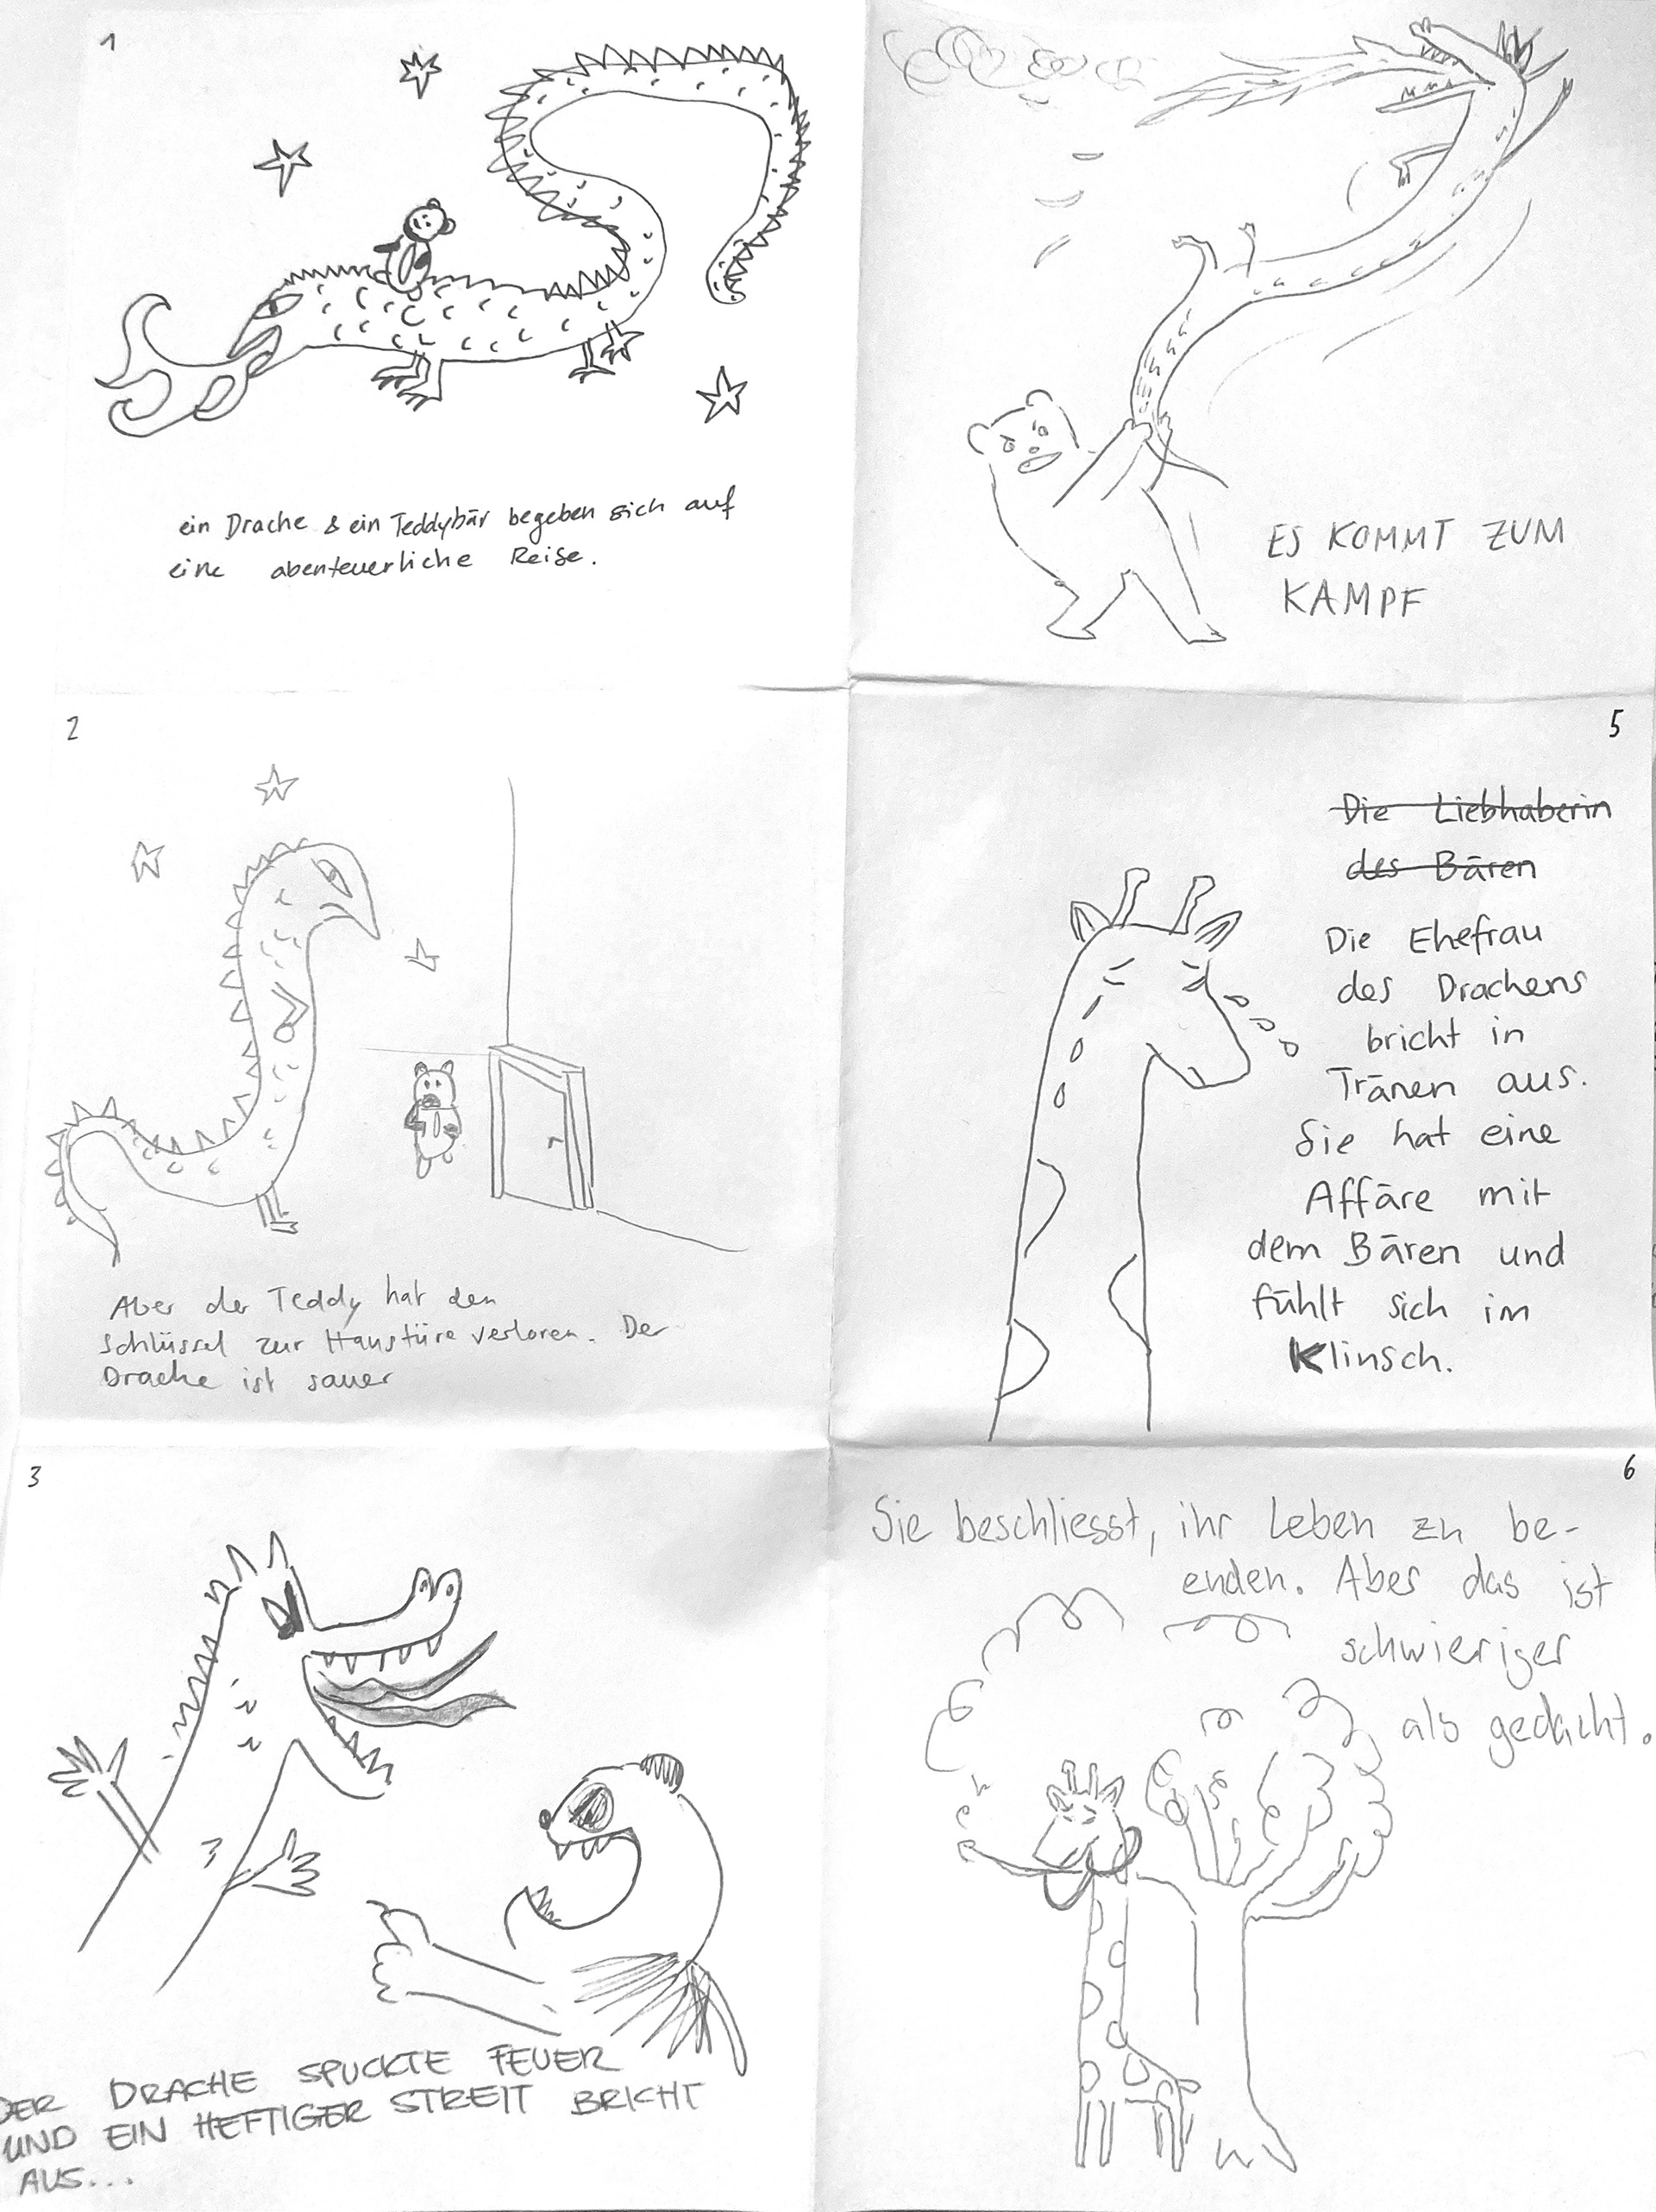 1
ein Drache & ein Teddybär begeben sich auf
eine abenteuerliche Reise.
2
Aber der Teddy hat den
Schlüssel zur Haustüre verloren. Der
Drache ist sauer
3
DER DRACHE SPUCKTE FEUER
UND EIN HEFTIGER STREIT BRICHT
AUS...
ES KOMMT ZUM
KAMPF
5
Die Liebhaberin
des Bären
Die Ehefrau
des Drachens
bricht in
Tränen aus.
Sie hat eine
Affäre mit
dem Bären und
fühlt sich im
Klinsch.
6
Sie beschliesst, ihr Leben zu be-
enden. Aber das ist
schwieriger
als gedacht.